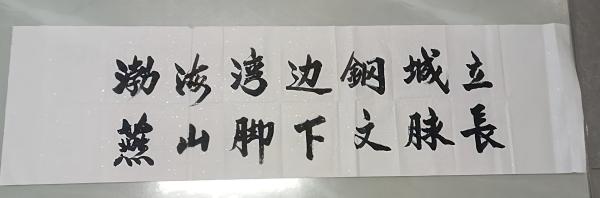 渤海湾边鋼城立
燕山脚下文脉長